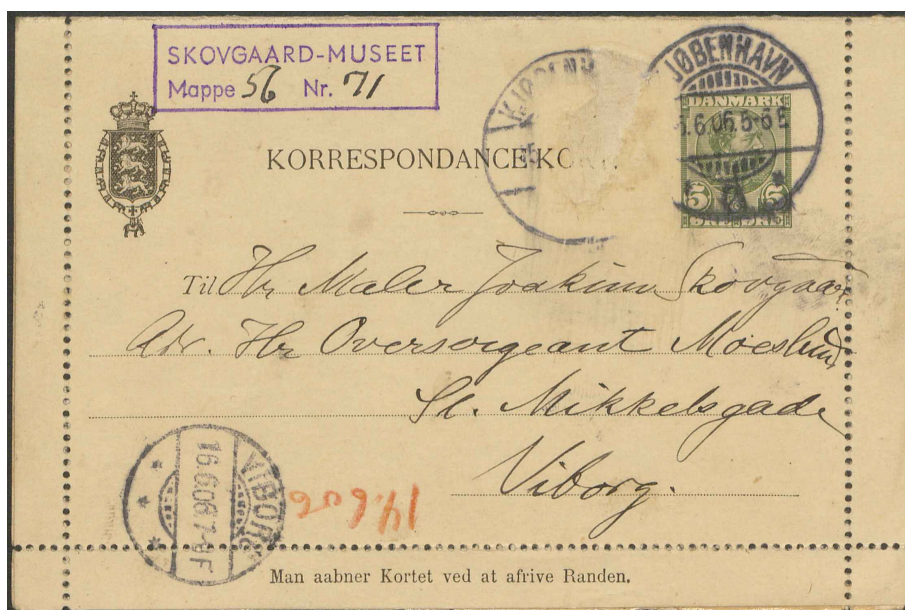 SKOVGAARD-MUSEET
Mappe 56 Nr. 71
KJØBENHAVN
DANMARK
5.6.06.5-6 E
5 5
KORRESPONDANCE-KORT.
Til Hr Maler Joakim Skovgaard
Adr. Hr Oversergeant Moeslund
St. Mikkelsgade
Viborg.
VIBORG
16.6.06.7-8 F
14.6.06
Man aabner Kortet ved at afrive Randen.